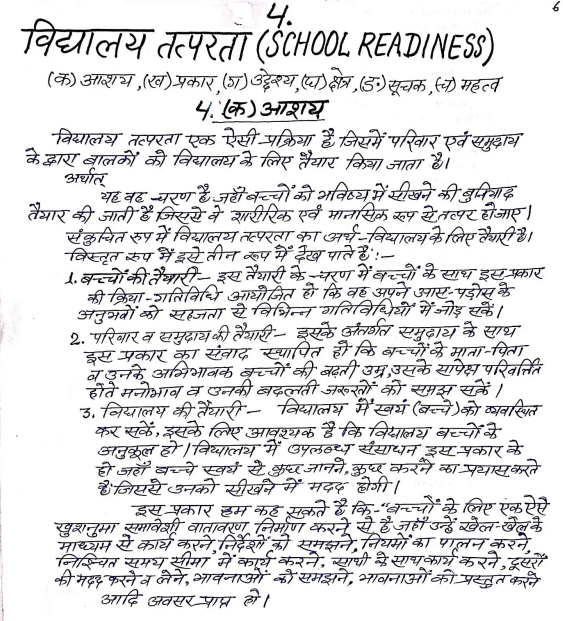 6
4.
विद्यालय तत्परता (SCHOOL READINESS)
(क) आशय, (ख) प्रकार, (ग) उद्देश्य, (घ) क्षेत्र, (ङ) सूचक, (च) महत्व
4. (क) आशय
विद्यालय तत्परता एक ऐसी प्रक्रिया है जिसमें परिवार एवं समुदाय
के द्वारा बालकों को विद्यालय के लिए तैयार किया जाता है।
अर्थात्
यह वह चरण है जहाँ बच्चों को भविष्य में सीखने की बुनियाद
तैयार की जाती है जिससे वे शारीरिक एवं मानसिक रूप से तत्पर होजाए।
संकुचित रूप में विद्यालय तत्परता का अर्थ - विद्यालय के लिए तैयारी है।
विस्तृत रूप में इसे तीन रूप में देख पाते हैं :-
1. बच्चों की तैयारी - इस तैयारी के चरण में बच्चों के साथ इस प्रकार
की क्रिया-गतिविधि आयोजित हो कि वह अपने आस-पड़ोस के
अनुभवों को सहजता से विभिन्न गतिविधियों में जोड़ सकें।
2. परिवार व समुदाय की तैयारी - इसके अंतर्गत समुदाय के साथ
इस प्रकार का संवाद स्थापित हो कि बच्चों के माता-पिता
व उनके अभिभावक बच्चों की बढ़ती उम्र, उसके सापेक्ष परिवर्तित
होते मनोभाव व उनकी बदलती जरूरतों को समझ सकें।
3. विद्यालय की तैयारी - विद्यालय में स्वयं (बच्चे) को व्यवस्थित
कर सकें, इसके लिए आवश्यक है कि विद्यालय बच्चों के
अनुकूल हो। विद्यालय में उपलब्ध संसाधन इस प्रकार के
हो जहाँ बच्चे स्वयं से कुछ जानने, कुछ करने का प्रयास करते
है जिससे उनको सीखने में मदद होगी।
इस प्रकार हम कह सकते है कि - "बच्चों के लिए एक ऐसे
खुशनुमा समावेशी वातावरण निर्माण करने से है जहाँ उन्हें खेल-खेल के
माध्यम से कार्य करने, निर्देशों को समझने, नियमों का पालन करने,
निश्चित समय सीमा में कार्य करने, साथी के साथ कार्य करने, दूसरों
की मदद करने व लेने, भावनाओं को समझने, भावनाओं को प्रस्तुत करने
आदि अवसर प्राप्त हो।